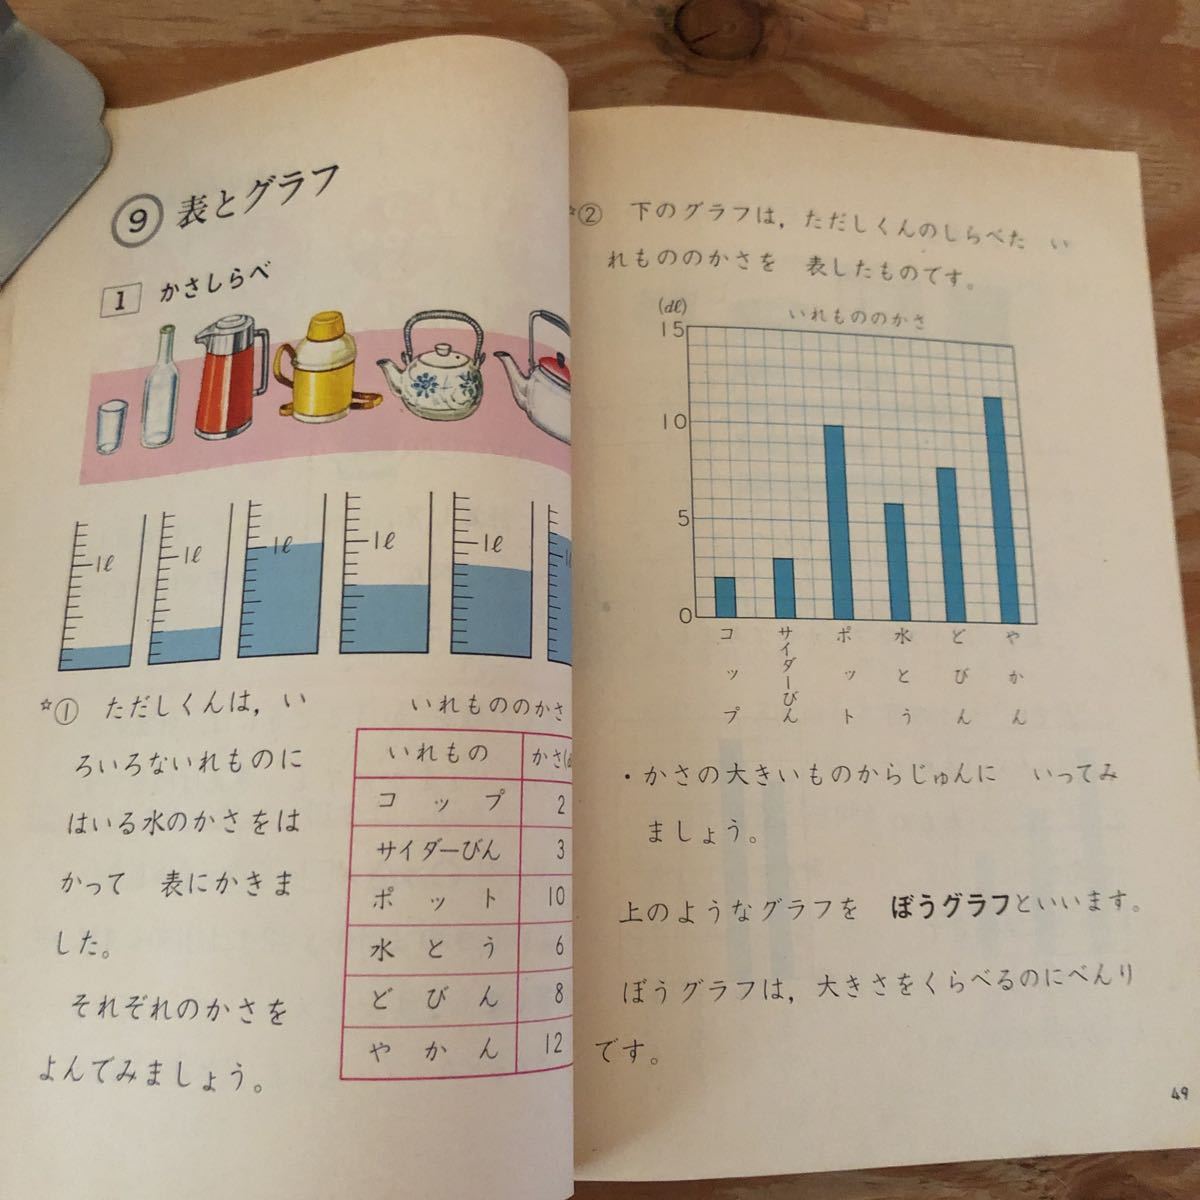 ⑨ 表とグラフ
1 かさしらべ
1ℓ 1ℓ 1ℓ 1ℓ 1ℓ 1ℓ
☆① ただしくんは，い
ろいろないれものに
はいる水のかさをは
かって 表にかきま
した。
それぞれのかさを
よんでみましょう。
いれもののかさ
いれもの かさ(
コップ 2
サイダーびん 3
ポット 10
水とう 6
どびん 8
やかん 12
☆② 下のグラフは，ただしくんのしらべた い
れもののかさを 表したものです。
(dℓ)
いれもののかさ
15
10
5
0
コップ
サイダーびん
ポット
水とう
どびん
やかん
・かさの大きいものからじゅんに いってみ
ましょう。
上のようなグラフを ぼうグラフといいます。
ぼうグラフは，大きさをくらべるのにべんり
です。
49